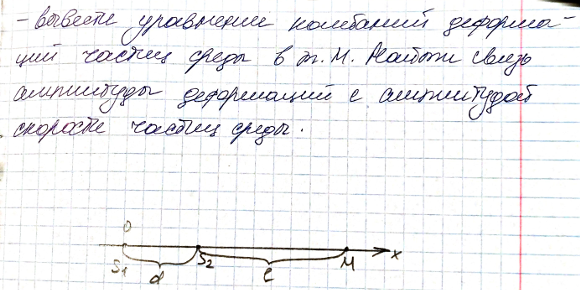 - вывести уравнение колебаний деформа-
ций частиц среды в т. М. Найти связь
амплитуды деформаций с амплитудой
скорости частиц среды.
0
S1 d S2 l M x